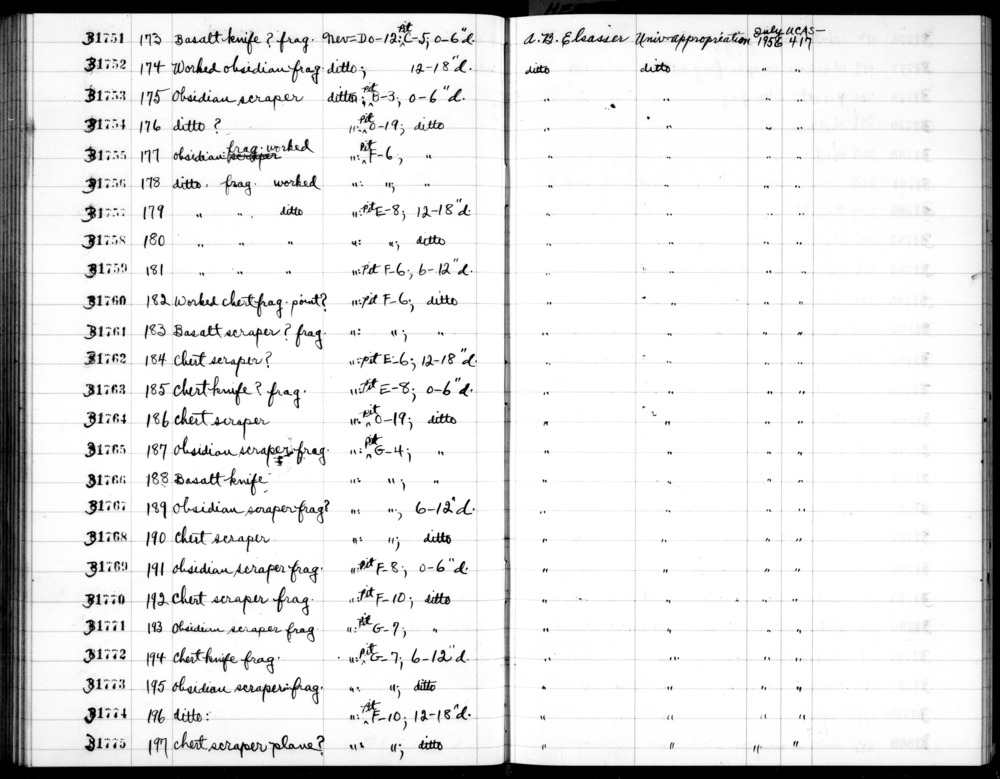 31751 173 Basalt knife? frag. Nev-Do-12: Pit C-5; 0-6"d. A. B. Elsasser Univ. appropriation July 1956 UCAS-417
31752 174 Worked obsidian frag. ditto; 12-18"d. ditto ditto " "
31753 175 Obsidian scraper ditto; Pit B-3; 0-6"d. " " " "
31754 176 ditto? ": Pit O-19; ditto " " " "
31755 177 obsidian scraper frag. worked ": Pit F-6; " " " " "
31756 178 ditto. frag. worked ": "; " " " " "
31757 179 " " ditto ": Pit E-8; 12-18"d. " " " "
31758 180 " " " ": "; ditto " " " "
31759 181 " " " ": Pit F-6; 6-12"d. " " " "
31760 182 Worked chert frag. point? ": Pit F-6; ditto " " " "
31761 183 Basalt scraper? frag. ": "; " " " " "
31762 184 Chert scraper? ": Pit E-6; 12-18"d. " " " "
31763 185 Chert knife? frag. ": Pit E-8; 0-6"d. " " " "
31764 186 Chert scraper ": Pit O-19; ditto " " " "
31765 187 Obsidian scraper frag. ": Pit G-4; " " " " "
31766 188 Basalt knife ": "; " " " " "
31767 189 Obsidian scraper frag? ": "; 6-12"d. " " " "
31768 190 Chert scraper ": "; ditto " " " "
31769 191 obsidian scraper frag. ": Pit F-8; 0-6"d. " " " "
31770 192 Chert scraper frag. ": Pit F-10; ditto " " " "
31771 193 Obsidian scraper frag ": Pit G-7; " " " " "
31772 194 Chert knife frag. ": Pit G-7; 6-12"d. " " " "
31773 195 obsidian scraper frag. ": "; ditto " " " "
31774 196 ditto: ": Pit F-10; 12-18"d. " " " "
31775 197 chert scraper plane? ": "; ditto " " " "